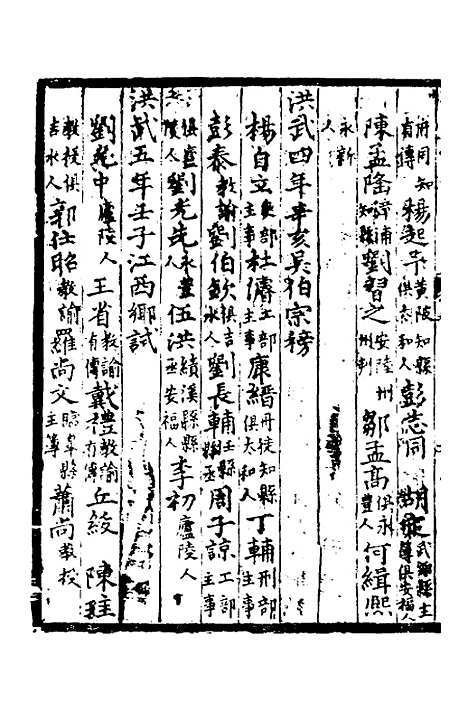 府同知有傳 楊起 黄陂知縣俱泰和人 彭志同 胡 武 縣主 俱安福人
陳孟隆漳浦知縣 劉習之安陸州判 鄒孟高俱永豐人 何緝熙
永新人
洪武四年辛亥吳伯宗榜
楊自立吏部主事 杜濬工部主事 康縉丹徒知縣俱太和人 丁輔刑部主事
彭泰教諭 劉伯欽俱吉水人 劉長輔 縣縣丞 周子諒工部主事
俱廬陵人 劉光先永豐人 伍洪績溪縣丞安福人 李初廬陵人
洪武五年壬子江西鄉試
劉允中廬陵人 王省教諭有傳 戴禮教諭有傳 丘綾 陳
教授俱吉水人 郭仕昭教諭 羅尚文臨 縣主簿 蕭尚教授